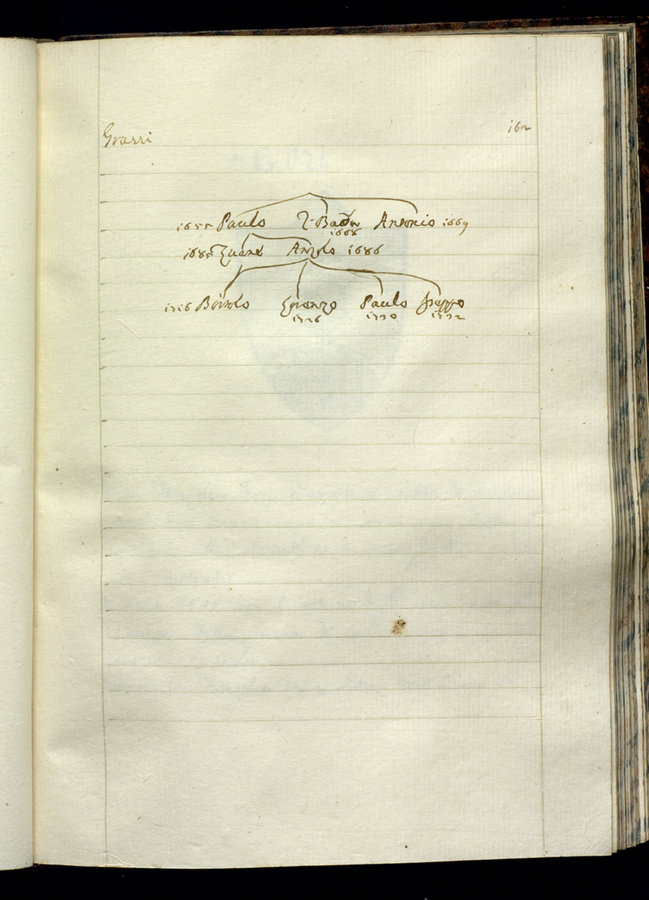 Grassi 162
1655 Paulo Z. Batta Antonio 1669
1668
1685 Zuane Anzolo 1686
1716 Bortolo Lorenzo Paulo Iseppo
1726 1730 1732